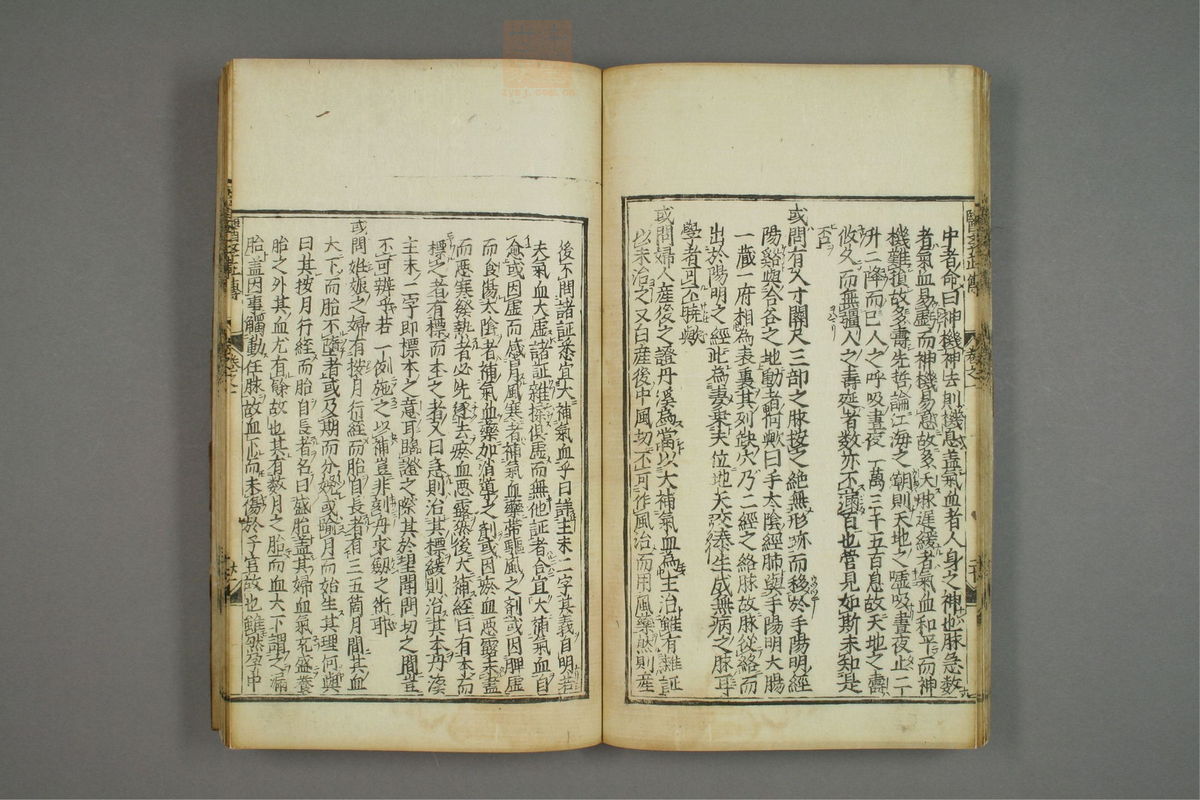 中者命曰神機神去則機息蓋氣血者人身之神也脉急数
者氣血易虧而神機易息故多夭脉遲緩者氣血和平而神
機難損故多壽先哲論江海之潮則天地之噓吸晝夜止二
升二降而已人之呼吸晝夜一萬三千五百息故天地之壽
攸久而無疆人之壽延者数亦不滿百也管見如斯未知是
否
或問有人寸關尺三部之脉按之絶無形跡而移於手陽明經
陽谿與合谷之地動者何歟曰手太陰經肺與手陽明大腸
一藏一府相為表裏其列缺穴乃二經之絡脉故脉從絡而
出於陽明之經此為妻乗夫位地天交泰生成無病之脉耳
學者可不暁歟
或問婦人産後之證丹溪為當以大補氣血為主治雖有雜証
以末治之又曰産後中風切不可作風治而用風藥然則産
後不問諸証悉宜大補氣血乎曰詳主末二字其義自明若
夫氣血大虛諸証雜揉俱虛而無他証者合宜大補氣血自
愈或因虛而感冒風寒者補氣血藥帯驅風之剤或因脾虛
而食傷太陰者補氣血藥加消導之剤或因瘀血惡露未盡
而惡寒發熱者必先逐去瘀血惡露然後大補經曰有本而
標之者有標而本之者又曰急則治其標緩則治其本丹溪
主末二字即標本之意耳臨證之際其於望聞問切之間豈
不可辨乎若一例施之以補豈非刻舟求劔之術耶
或問姙娠之婦有按月行經而胎自長者有三五箇月間其血
大下而胎不墮者或及期而分娩或踰月而始生其理何與
曰其按月行經而胎自長者名曰盛胎蓋其婦血氣充盛養
胎之外其血尤有餘故也其有数月之胎而血大下謂之漏
胎蓋因事觸動任脉故血下而未傷於子宫故也雖然孕中